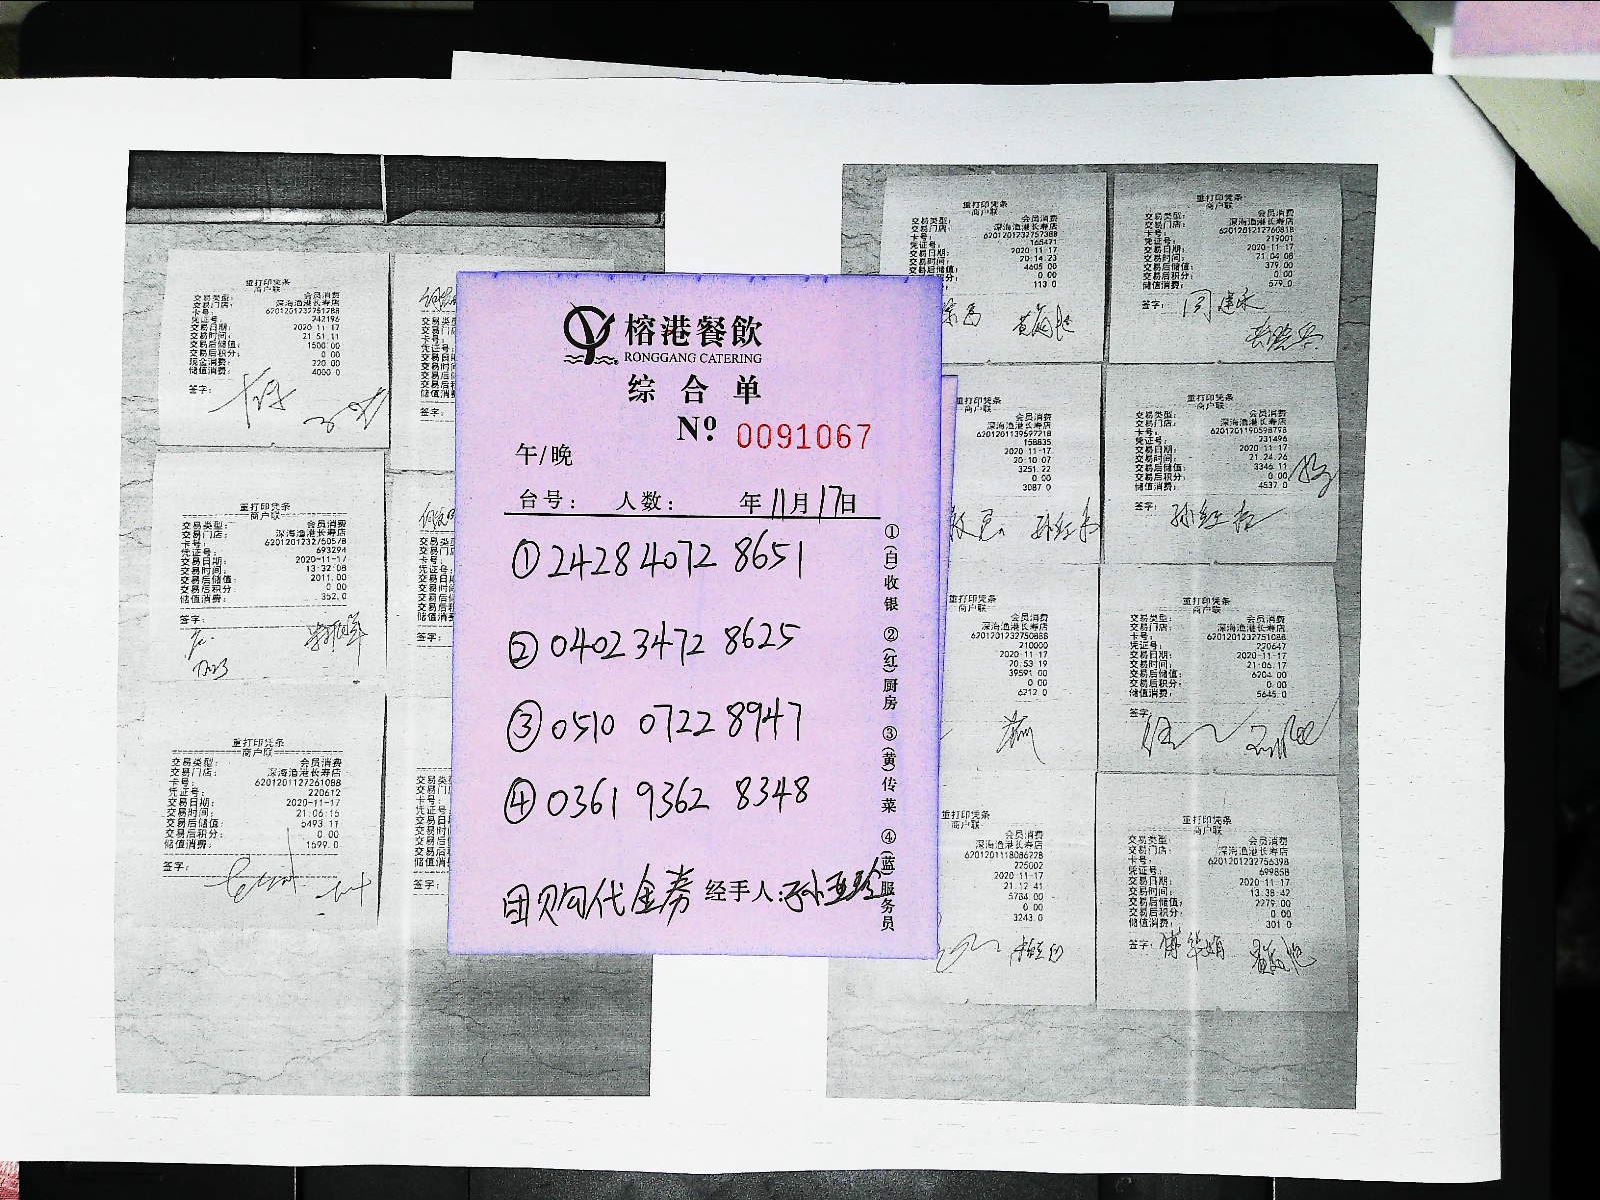 榕港餐飲
RONGGANG CATERING
综合单
Nº 0091067
午/晚
台号: 人数: 年11月17日
①2428 4072 8651
②0402 3472 8625
③0510 0722 8947
④0361 9362 8348
团购代金券 经手人:孙亚珍
①(白)收银 ②(红)厨房 ③(黄)传菜 ④(蓝)服务员
重打印凭条
商户联
交易类型: 会员消费
交易门店: 深海渔港长寿店
卡号: 6201201232751788
凭证号: 242196
交易日期: 2020-11-17
交易时间: 21:51:11
交易后储值: 1500.00
交易后积分: 0.00
现金消费: 220.00
储值消费: 4000.0
签字:
重打印凭条
商户联
交易类型: 会员消费
交易门店: 深海渔港长寿店
卡号: 6201201232750578
凭证号: 693294
交易日期: 2020-11-17
交易时间: 13:32:08
交易后储值: 2011.00
交易后积分: 0.00
储值消费: 352.0
签字:
重打印凭条
商户联
交易类型: 会员消费
交易门店: 深海渔港长寿店
卡号: 6201201127261088
凭证号: 220612
交易日期: 2020-11-17
交易时间: 21:06:15
交易后储值: 5493.11
交易后积分: 0.00
储值消费: 1599.0
签字:
重打印凭条
商户联
交易类型: 会员消费
交易门店: 深海渔港长寿店
卡号: 6201201232757388
凭证号: 165471
交易日期: 2020-11-17
交易时间: 20:14:23
交易后储值: 4605.00
0.00
113.0
重打印凭条
商户联
交易类型: 会员消费
交易门店: 深海渔港长寿店
卡号: 6201201212760818
凭证号: 219001
交易日期: 2020-11-17
交易时间: 21:04:08
交易后储值: 379.00
交易后积分: 0.00
储值消费: 579.0
签字:
打印凭条
商户联
会员消费
深海渔港长寿店
6201201139597218
158835
2020-11-17
20:10:07
3251.22
0.00
3087.0
重打印凭条
商户联
交易类型: 会员消费
交易门店: 深海渔港长寿店
卡号: 6201201190598798
凭证号: 231496
交易日期: 2020-11-17
交易时间: 21:24:26
交易后储值: 3346.11
交易后积分: 0.00
储值消费: 4537.0
签字: 孙红
打印凭条
商户联
会员消费
深海渔港长寿店
6201201232750888
210000
2020-11-17
20:53:19
39591.00
0.00
6212.0
重打印凭条
商户联
交易类型: 会员消费
交易门店: 深海渔港长寿店
卡号: 6201201232751088
凭证号: 220647
交易日期: 2020-11-17
交易时间: 21:06:17
交易后储值: 6204.00
交易后积分: 0.00
储值消费: 5645.0
签字:
打印凭条
商户联
会员消费
深海渔港长寿店
6201201118086228
225002
2020-11-17
21:12:41
5784.00
0.00
3243.0
重打印凭条
商户联
交易类型: 会员消费
交易门店: 深海渔港长寿店
卡号: 6201201232756398
凭证号: 699858
交易日期: 2020-11-17
交易时间: 13:38:42
交易后储值: 2279.00
交易后积分: 0.00
储值消费: 301.0
签字: 傅华娟